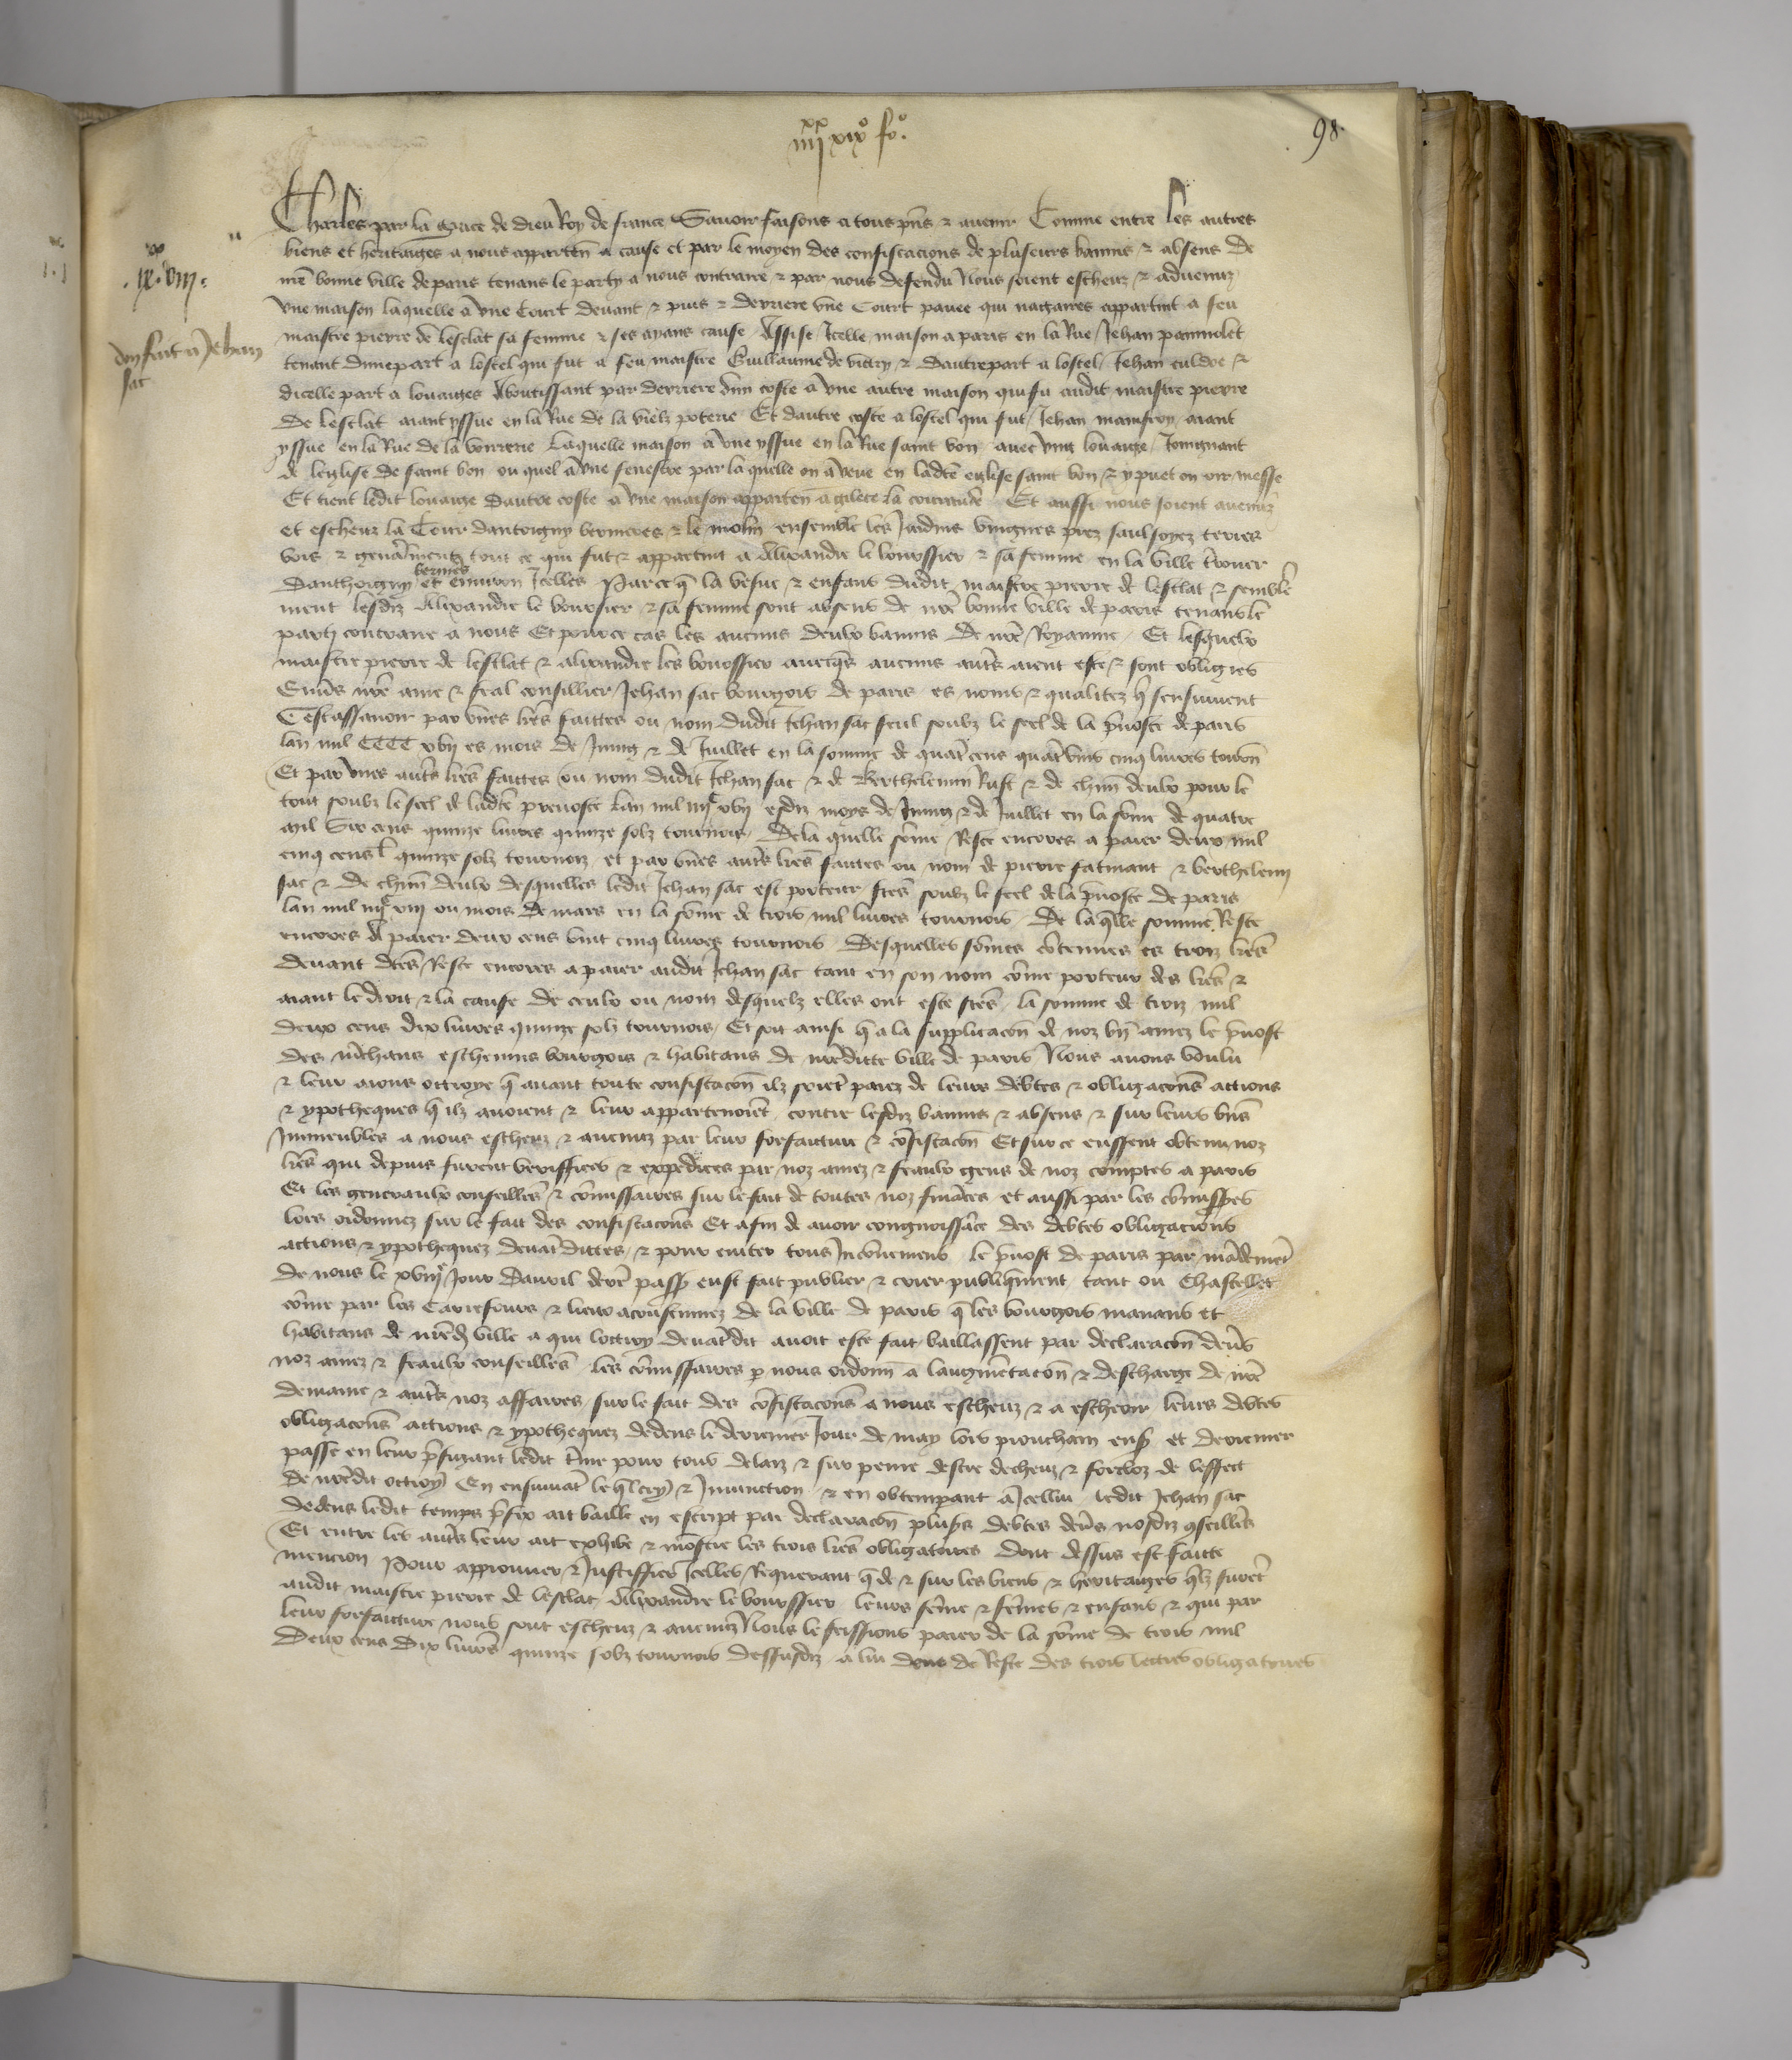 iiii xx xix o fo.
98.
Charles par la grace de dieu Roy de france Savoir faisons a tous pns & avenir Comme entre les autres
biens et heritaiges a nous apparten a cause et par le moyen des confiscacions de pluseurs bannis & absens de
nre bonne ville de paris tenans le party a nous contraire & par nous defendu Nous soient escheuz & advenuz
une maison laquelle a une Court devant & puis & derriere une Court pavee qui nagaires appartint a feu
maistre pierre de lesclat sa femme & ses ayans cause Assise Icelle maison a paris en la Rue Jehan painmolet
tenant dunepart a lostel qui fut a feu maistre Guillaume de vitry & dautrepart a lostel Jehan culdoe &
dicelle part a louaiges Aboutissant par derriere dun coste a une autre maison qui fu audit maistre pierre
de lesclat aiant yssue en la Rue de la vielz poterie Et dautre coste a lostel qui fut Jehan mainfroy aiant
yssue en la Rue de la voirrerie Laquelle maison a une yssue en la Rue saint bon avec ung louaige Joingnant
de leglise de saint bon ou quel a une fenestre par la quelle on a veue en ladte eglise saint bon & y puet on oir messe
Et tient ledit louaige dautre coste a une maison apparten a gilete la Et aussi nous soient avenuz
et escheuz la Tour dantoigny verrieres & le molin ensemble les Jardins vingnes prez saulsoyez terres
bois & generalment tout ce qui fut & appartint a Alixandre le boursier & sa femme en la ville terouer
Danthoigny verrieres et environ Icelles Parce q la vesve & enfans dudit maistre pierre de lesclat & semble
ment lesdiz Alixandre le boursier & sa femme sont absens de nre bonne ville de paris tenans le
party contraire a nous Et pour ce cas les aucuns deulx bannis de nre Royaume Et lesquelx
maistre pierre de lesclat & alixandre les boursier avecqs aucuns autrs aient este & sont obligies
Envs nre ame & feal consillier Jehan sac bourgois de paris es noms & qualitez q sensuivent
Cestassavoir par unes lres faittes ou nom dudit Jehan sac seul soubz le seel de la pvoste de paris
lan mil CCCC xvij es mois de Juing & de Juillet en la somme de quatre cens quatre vins cinq livres tourn
Et par unes autrs lres faittes ou nom dudit Jehan sac & de Berthelemin Rust & de chun deulx pour le
tout soubz le seel de ladte prevoste lan mil iiijc xvij esdiz moys de Juing & de Juillet en la some de quatre
mil six cens quinze livres quinze solz tournois De la quelle some Reste encores a paier deux mil
cinq cens l quinze solz tournoiz et par unes autrs lres faittes ou nom de pierre fatinant & berthelemy
sac & de chun deulx desquelles ledit Jehan sac est porteur ftes soubz le seel de la pvoste de paris
lan mil iiijc ou mois de mars en la some de trois mil livres tournois De laqlle somme Reste
encores A paier deux cens vint cinq livres tournois Desquelles somes contenues es troiz lres
devant dtes Reste encores a paier audit Jehan sac tant en son nom come porteur des lres &
aiant le droit & la cause de ceulx ou nom desquelz elles ont este ftes la somme de troiz mil
deux cens dix livres quinze solz tournois Et soit ainsi q a la supplicacon de noz bn amez le pvost
des mchans eschevins bourgois & habitans de nredicte ville de paris Nous avons voulu
& leur aions ottroye q avant toute confiscacon ilz soiet paiez de leurs debtes & obligacons actions
& ypotheques q ilz avoient & leur appartenoiet contre lesdiz bannis & absens & sur leurs bns
Immeubles a nous escheuz & avenuz par leur forfaiture & cofiscacon Et sur ce eussent obtenu noz
lres qui depuis furent veriffiees & expediees par noz amez & feaulx gens de noz comptes a paris
Et les generaulx conseilles & comissaires sur le fait de toutes noz finaces et aussi par les comisses
lors ordonnez sur le fait des confiscacons Et afin de avoir congnoissace des debtes obligacions
actions & ypothequez devatdittes & pour eviter tous Inconveniens le pvost de paris par mademet
de nous le xviije Jour davril derr passe eust fait publier & crier publiqment tant ou Chastellet
come par les Carrefours & lieux acoustumez de la ville de paris q les bourgois manans et
habitans de nred ville a qui lottroy devatdit avoit este fait baillassent par declaracon devs
noz amez & feaulx conseilles les comissaires p nous ordonn a laugmetacon & descharge de nre
demaine & autrs noz affaires sur le fait des cofiscacons a nous escheuz & a escheoir leurs debtes
obligacons actions & ypothequez dedens le derrenier Jour de may lors prouchain ens et derrenier
passe en leur pfigant ledit tme pour tous delaiz & sur peine destre decheuz & forcloz de leffect
de nredit ottroy En ensuivat leql cry & Injunction & en obtempant a Icellui ledit Jehan sac
dedens ledit temps pfix ait baille en escript par declaracon plusrs debtes devs nosdiz gseilles
Et entre les autrs leur ait exhibe & mostre les trois lres obligatoires dont dessus est faitte
mencion Pour approuver & Justiffier Icelles Requerant q de & sur les biens & heritaiges qlz furet
audit maistre pierre de lesclat Alixandre le boursier leurs feme & femes & enfans & qui par
leur forfaicture nous sont escheuz & avenuz Nous le feissions paier de la some de trois mil
Deux cens dix livres quinze solz tournois dessusdiz a lui deue de Reste des trois lettres obligatoires
Don fait a Jehan
sac